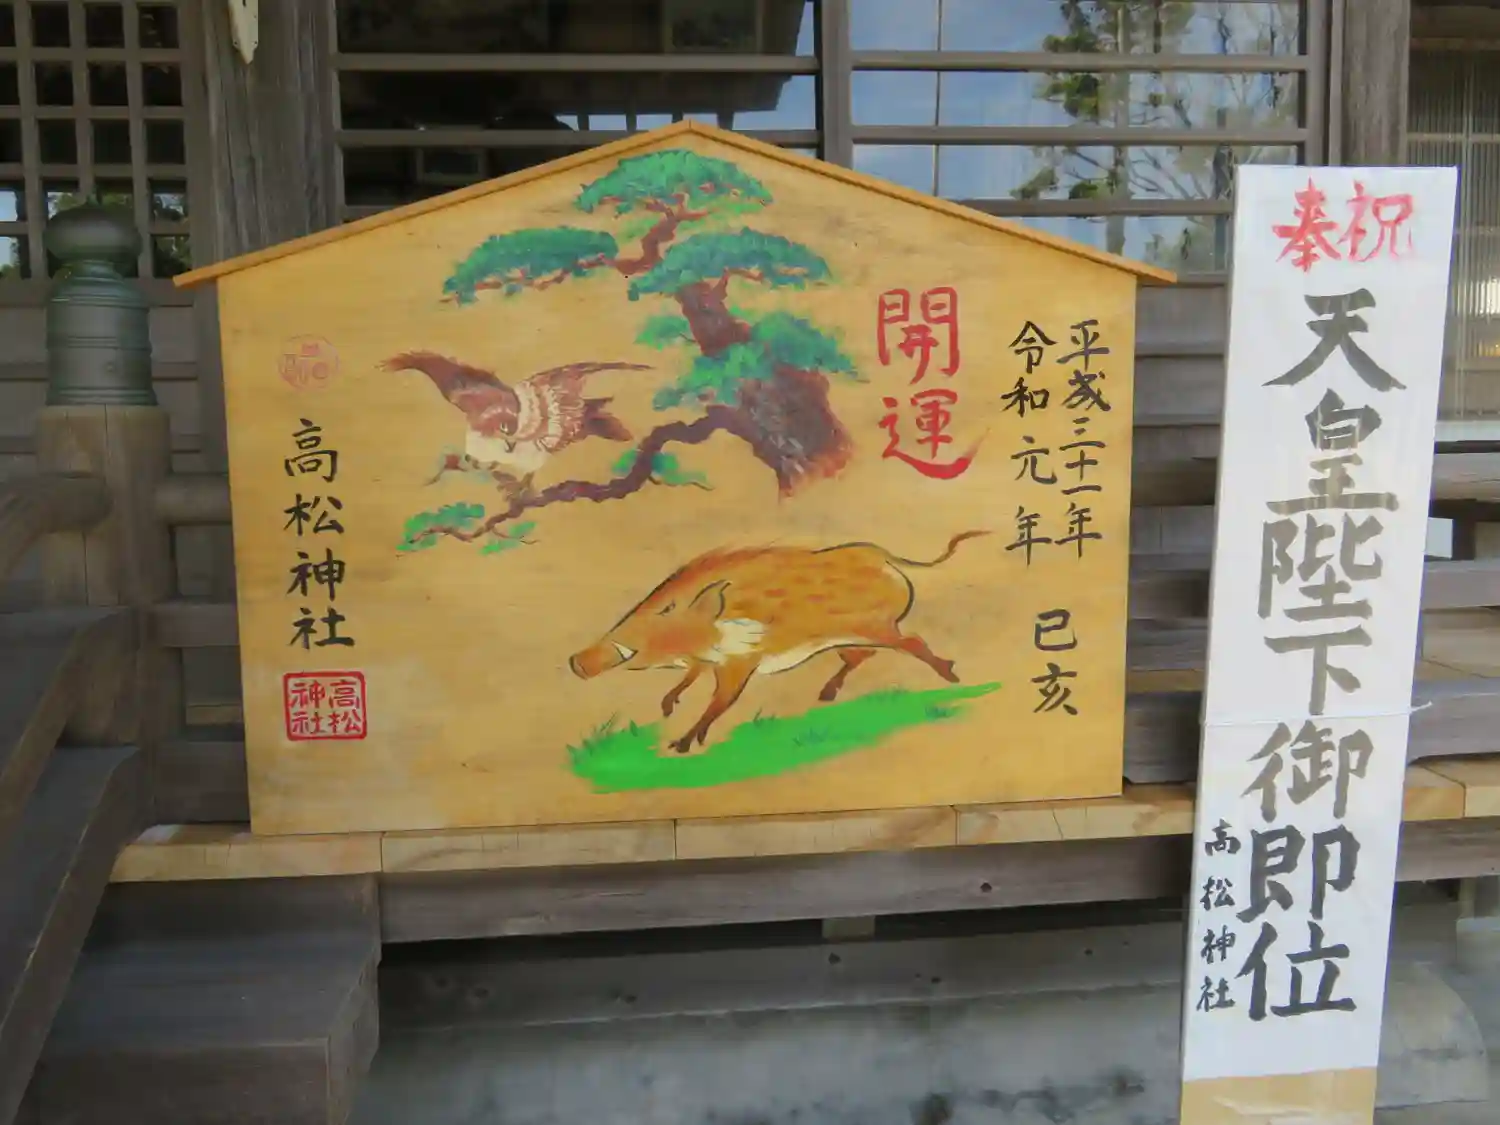 奉祝
天皇陛下御即位
高松神社
平成三十一年
令和元年 己亥
開運
高松神社
高松
神社